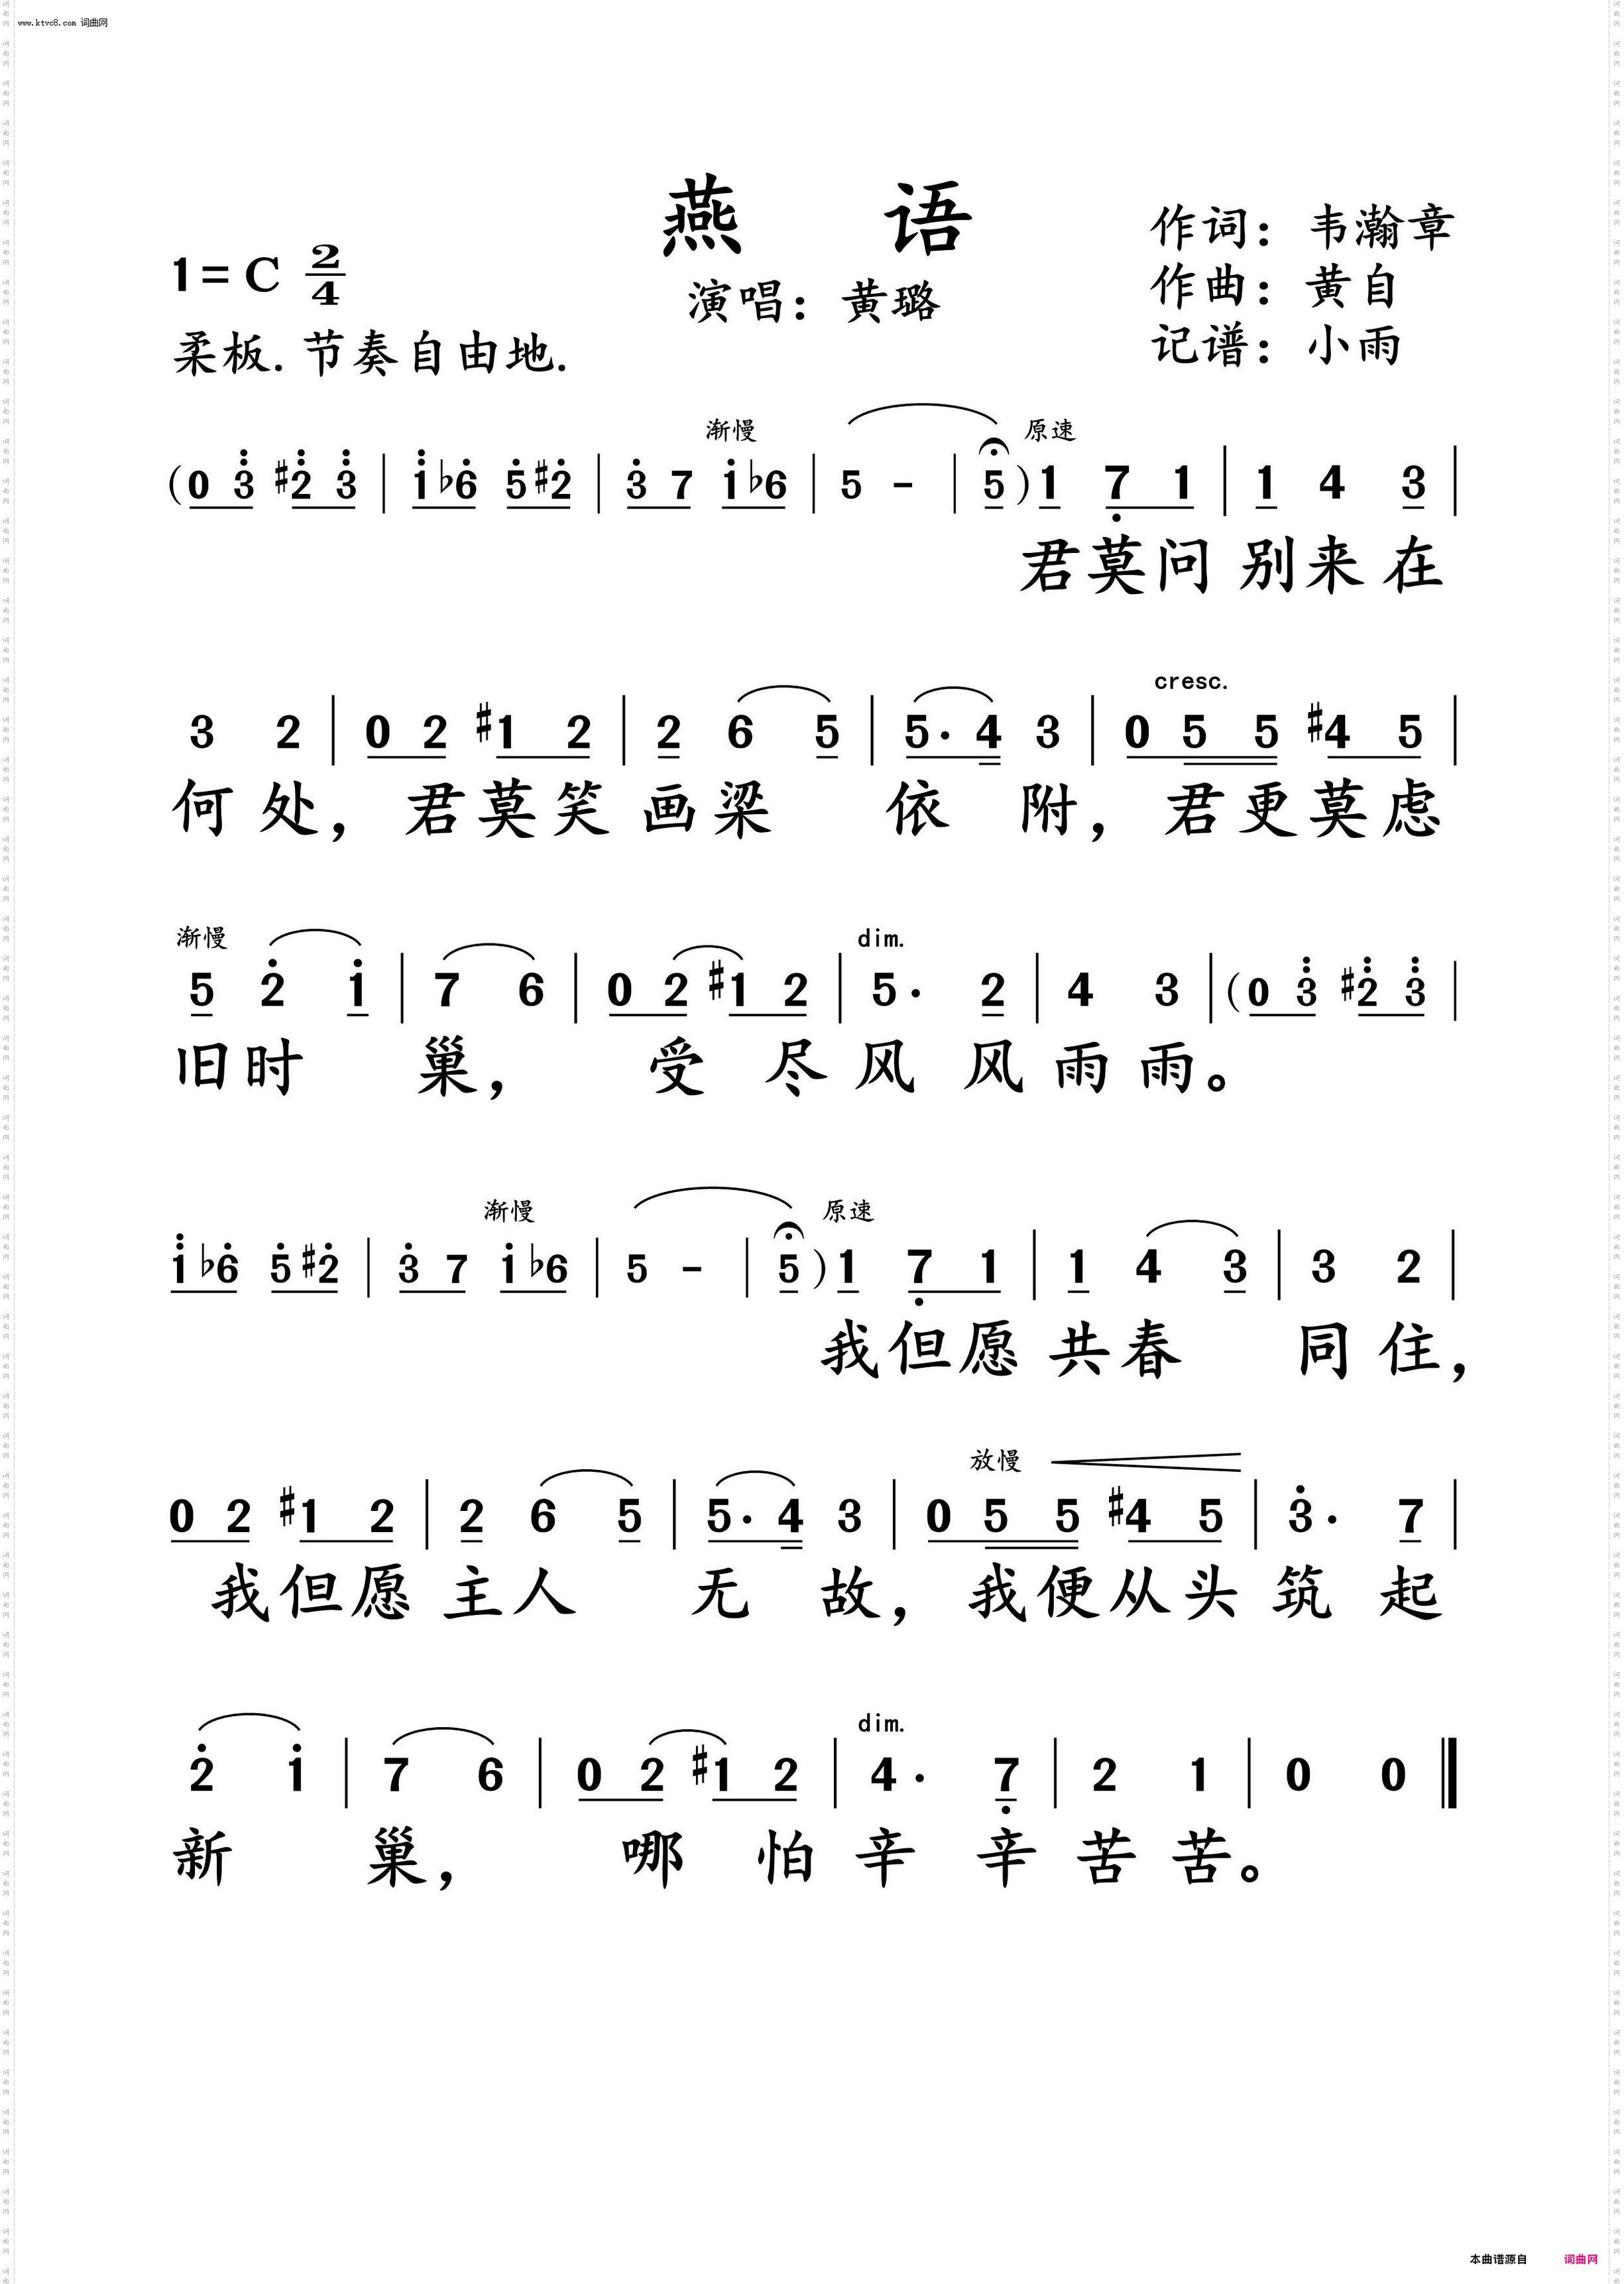 www.ktvc8.com 词曲网
燕 语
作词：韦瀚章
1=C 2/4
演唱：黄璐
作曲：黄自
柔板.节奏自由地.
记谱：小雨
渐慢 原速
(0 3 #2 3 | 1 b6 5 #2 | 3 7 1 b6 | 5 - | 5 ) 1 7 1 | 1 4 3 |
君莫问 别来在
cresc.
3 2 | 0 2 #1 2 | 2 6 5 | 5· 4 3 | 0 5 5 #4 5 |
何处，君莫笑 画梁 依 附，君更莫虑
渐慢 dim.
5 2 1 | 7 6 | 0 2 #1 2 | 5· 2 | 4 3 | (0 3 #2 3 |
旧时 巢， 受 尽 风 风 雨 雨。
渐慢 原速
1 b6 5 #2 | 3 7 1 b6 | 5 - | 5 ) 1 7 1 | 1 4 3 | 3 2 |
我但愿 共春 同住，
放慢
0 2 #1 2 | 2 6 5 | 5· 4 3 | 0 5 5 #4 5 | 3· 7 |
我但愿 主人 无 故，我便从头 筑 起
dim.
2 1 | 7 6 | 0 2 #1 2 | 4· 7 | 2 1 | 0 0 ‖
新 巢， 哪 怕 辛 辛 苦 苦。
本曲谱源自 词曲网